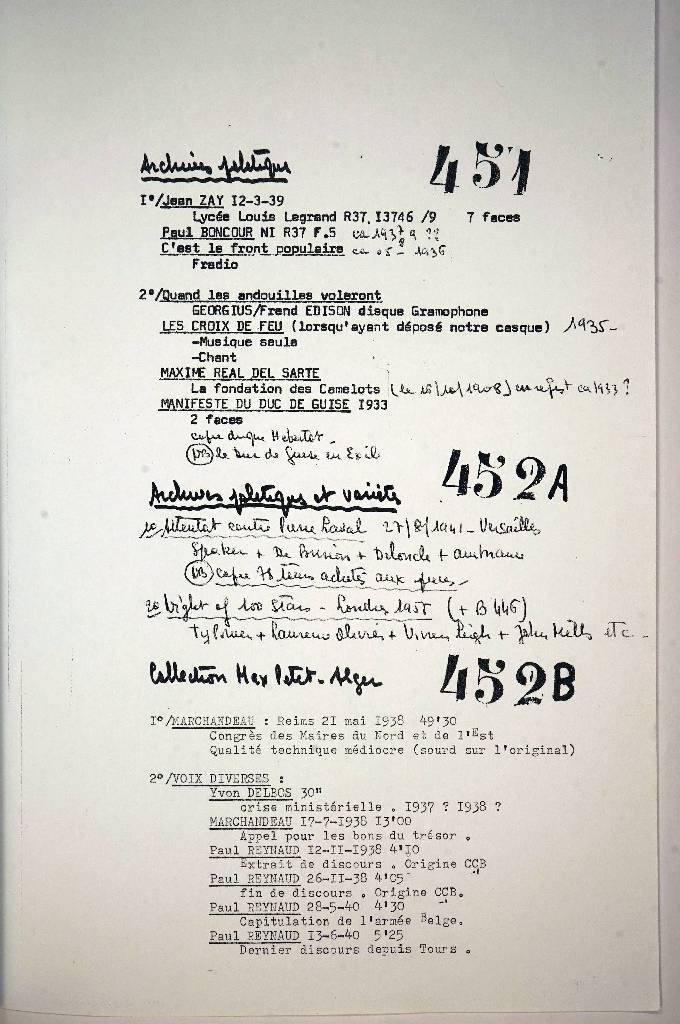 Archives politiques 451
I°/Jean ZAY I2-3-39
Lycée Louis Legrand R37.I3746 /9 7 faces
Paul BONCOUR NI R37 F.5 ca 1937 ??
C'est le front populaire ca 05- 1936
Fradio
2°/Quand les andouilles voleront
GEORGIUS/Frend EDISON disque Gramophone
LES CROIX DE FEU (lorsqu'ayant déposé notre casque) 1935-
-Musique seule
-Chant
MAXIME REAL DEL SARTE
La fondation des Camelots (le 16/10/1908) ca 1933 ?
MANIFESTE DU DUC DE GUISE I933
2 faces
copie disque Hebertot -
(NB) le Duc de Guise en Exil
452A
Archives politiques et variétés
1° Attentat contre Pierre Laval 27/8/1941 - Versailles
Speaker + De Brinon + Deloncle + ambiance
(NB) copie 78 tours achetés aux puces -
2° Night of 100 Stars - Londres 1955 (+ B 446)
Ty Power + Laurence Olivier + Vivien Leigh + John Mills etc -
Collection Max Petit - Alger 452B
I°/MARCHANDEAU : Reims 2I mai I938 49'30
Congrès des Maires du Nord et de l'Est
Qualité technique médiocre (sourd sur l'original)
2°/VOIX DIVERSES :
Yvon DELBOS 30"
crise ministérielle . I937 ? I938 ?
MARCHANDEAU I7-7-I938 I3'00
Appel pour les bons du trésor .
Paul REYNAUD I2-II-I938 4'I0
Extrait de discours . Origine CCB
Paul REYNAUD 26-II-38 4'05
fin de discours . Origine CCB.
Paul REYNAUD 28-5-40 4'30
Capitulation de l'armée Belge.
Paul REYNAUD I3-6-40 5'25
Dernier discours depuis Tours .